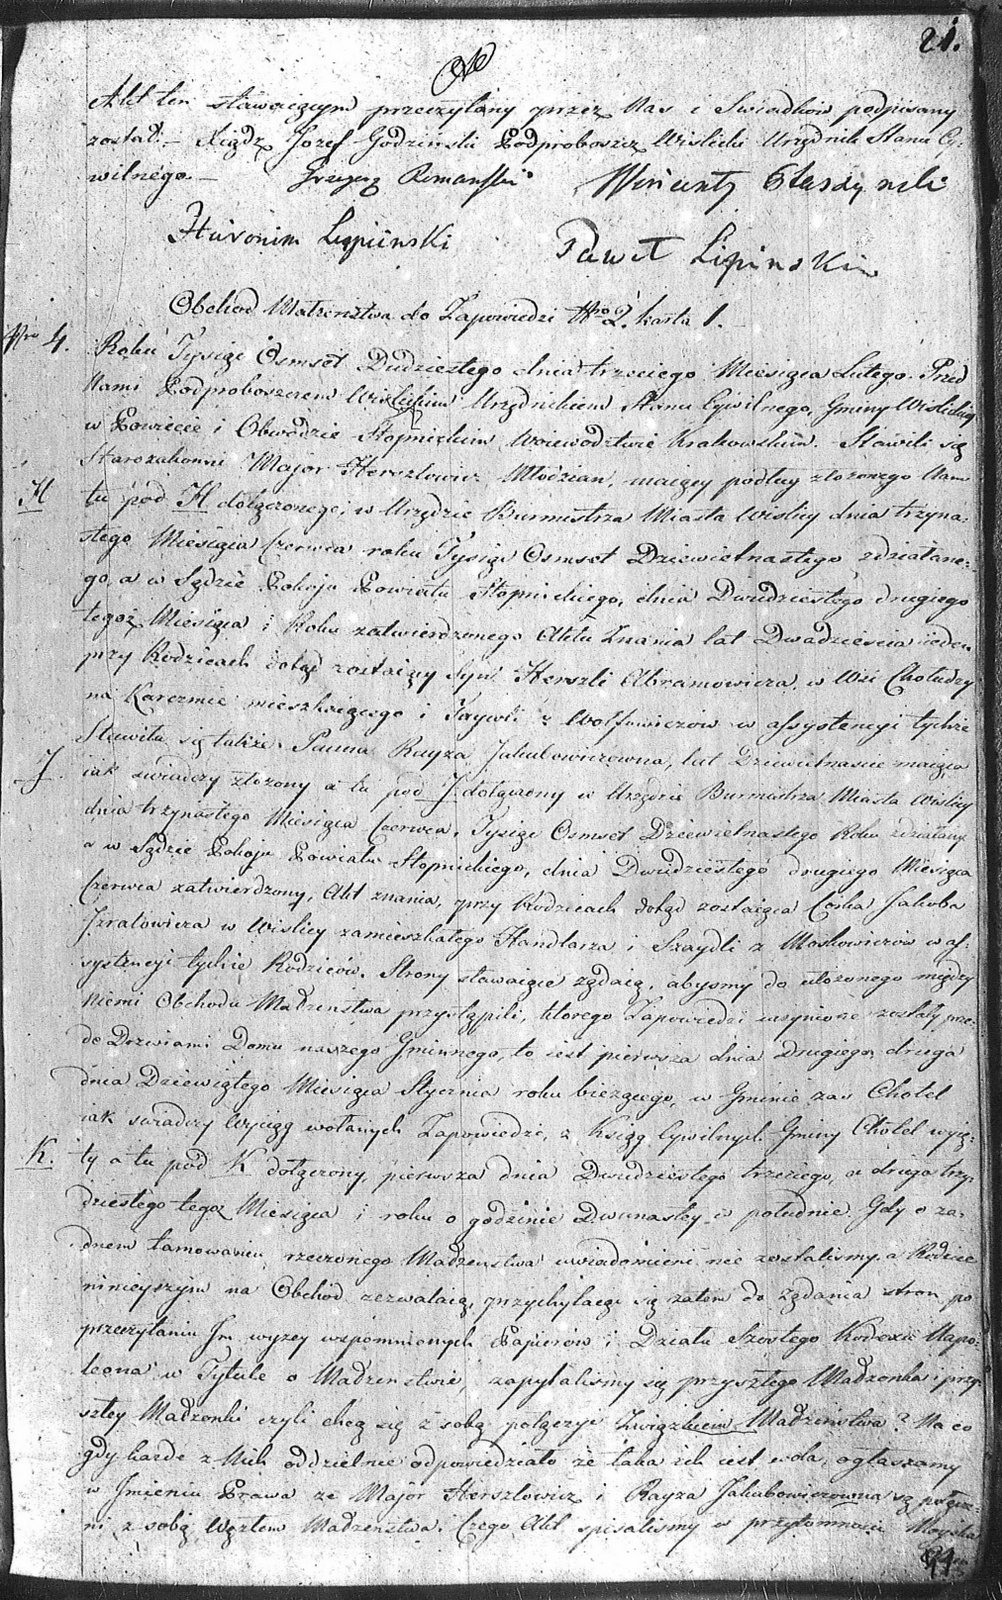 21.
Akt ten stawaiącym przeczytany przez Nas i Swiadków podpisany
został. – Xiądz Jozef Godzinski Podproboszcz Wislicki Urzędnik Stanu Cy-
wilnego. – Grzegorz Romanski Wincenty
Hieronim Lipinski Paweł Lipinski
Obchod Małzenstwa do Zapowiedzi Nro 2. karta 1.
Nro 4. Roku Tysiąc Osmset Dudziestego dnia trzeciego Miesiąca Lutego. Przed
Nami Podproboszczem Wislickim Urzędnikiem Stanu Cywilnego, Gminy Wislickiey
w Powiecie i Obwodzie Stopnickim Woiewodztwie Krakowskim – Stawili się
Starozakonni Major Herszlowicz Młodzian, maiący podług złozonego Nam
H tu pod H dołączonego, w Urzędzie Burmistrza Miasta Wislicy dnia trzyna-
stego Miesiąca Czerwca roku Tysiąc Osmset Dziewietnastego zdziałane-
go, a w Sądzie Pokoju Powiatu Stopnickiego, dnia Dwudziestego drugiego
tegoż Miesiąca i Roku zatwierdzonego Aktu Znania lat Dwadziescia ieden
przy Rodzicach dotąd zostaiący Syn Herszli Abramowicza, w Wsi Chotudzy
na Karczmie mieszkaiącego i Faywli z Wolfowiczów w assystencyi tychże
Stawiła się także Panna Rayza Jakubowiczowna, lat Dziewietnascie maiąca
J iak swiadczy złozony a tu pod J. dołączony w Urzędzie Burmistrza Miasta Wislicy
dnia trzynastego Miesiąca Czerwca, Tysiąc Osmset Dziewietnastego Roku zdziałany
a w Sądzie Pokoju Powiatu Stopnickiego, dnia Dwudziestego drugiego Miesiąca
Czerwca zatwierdzony, Akt znania, przy Rodzicach dotąd zostaiąca Córka Jakoba
Izralowicza w Wislicy zamieszkałego Handlarza i Szaydli z Moskowiczów w as-
systencyi tychże Rodziców. Strony stawaiące ządaią, abysmy do ułożonego między
Niemi Obchodu Małzenstwa przystąpili, ktorego Zapowiedzi uczynione zostały prze-
de Drzwiami Domu naszego Gminnego, to iest pierwsza dnia Drugiego, druga
dnia Dziewiątego Miesiąca Stycznia roku bieżącego, w Gminie zas Chotel
iak swiadczy Wyciąg wołanych Zapowiedzi, z Ksiąg Cywilnych Gminy Chotel wyię-
K. ty a tu pod K dołączony, pierwsza dnia Dwudziestego trzeciego, a druga trzy-
dziestego tegoż Miesiąca i roku o godzinie Dwunastey w południe. Gdy o ża-
dnem tamowaniu rzeczonego Małzenstwa uwiadomieni nie zostalismy, a Rodzice
ninieyszym na Obchod zezwalaią, przychylaiąc się zatem do ządania stron po
przeczytaniu Im wyzey wspomnionych Papierów i Działu Szostego Kodexu Napo-
leona w Tytule o Małzenstwie, zapytalismy się przyszłego Małzonka i przy-
szłey Małzonki czyli chcą się z sobą połączyć Związkiem Małzenstwa? Na co
gdy każde z Nich oddzielnie odpowiedziało ze taka ich iest wola, ogłaszamy
w Imieniu Prawa ze Major Herszlowicz i Rayza Jakubowiczowna są połącze-
ni z sobą Węzłem Małzenstwa. Czego Akt spisalismy w przytomnosci Moyska